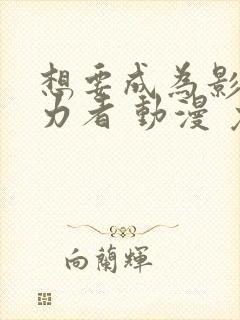 想要成為影
力者 動漫
向蘭輝